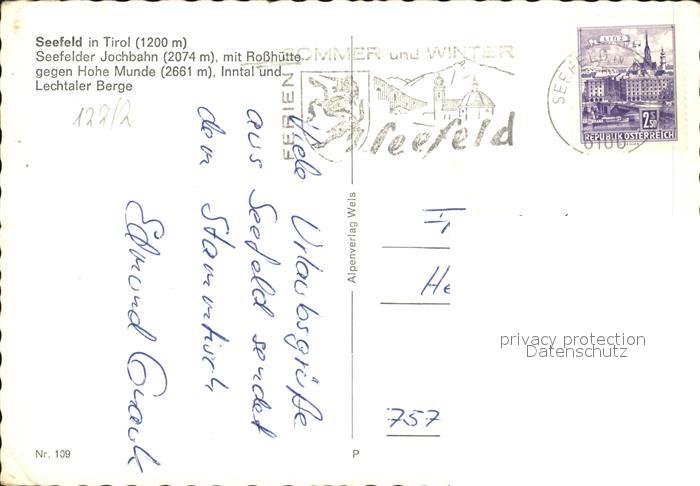 Seefeld in Tirol (1200 m)
Seefelder Jochbahn (2074 m), mit Roßhütte
gegen Hohe Munde (2661 m), Inntal und
Lechtaler Berge
122/2
SOMMER und WINTER
FERIEN
Seefeld
SEEFELD IN
6100
LINZ
2.50
REPUBLIK ÖSTERREICH
Viele Urlaubsgrüße
aus Seefeld sendet
dem Stammtisch
Edmund
Alpenverlag Wels
He
757
privacy protection
Datenschutz
Nr. 109
P